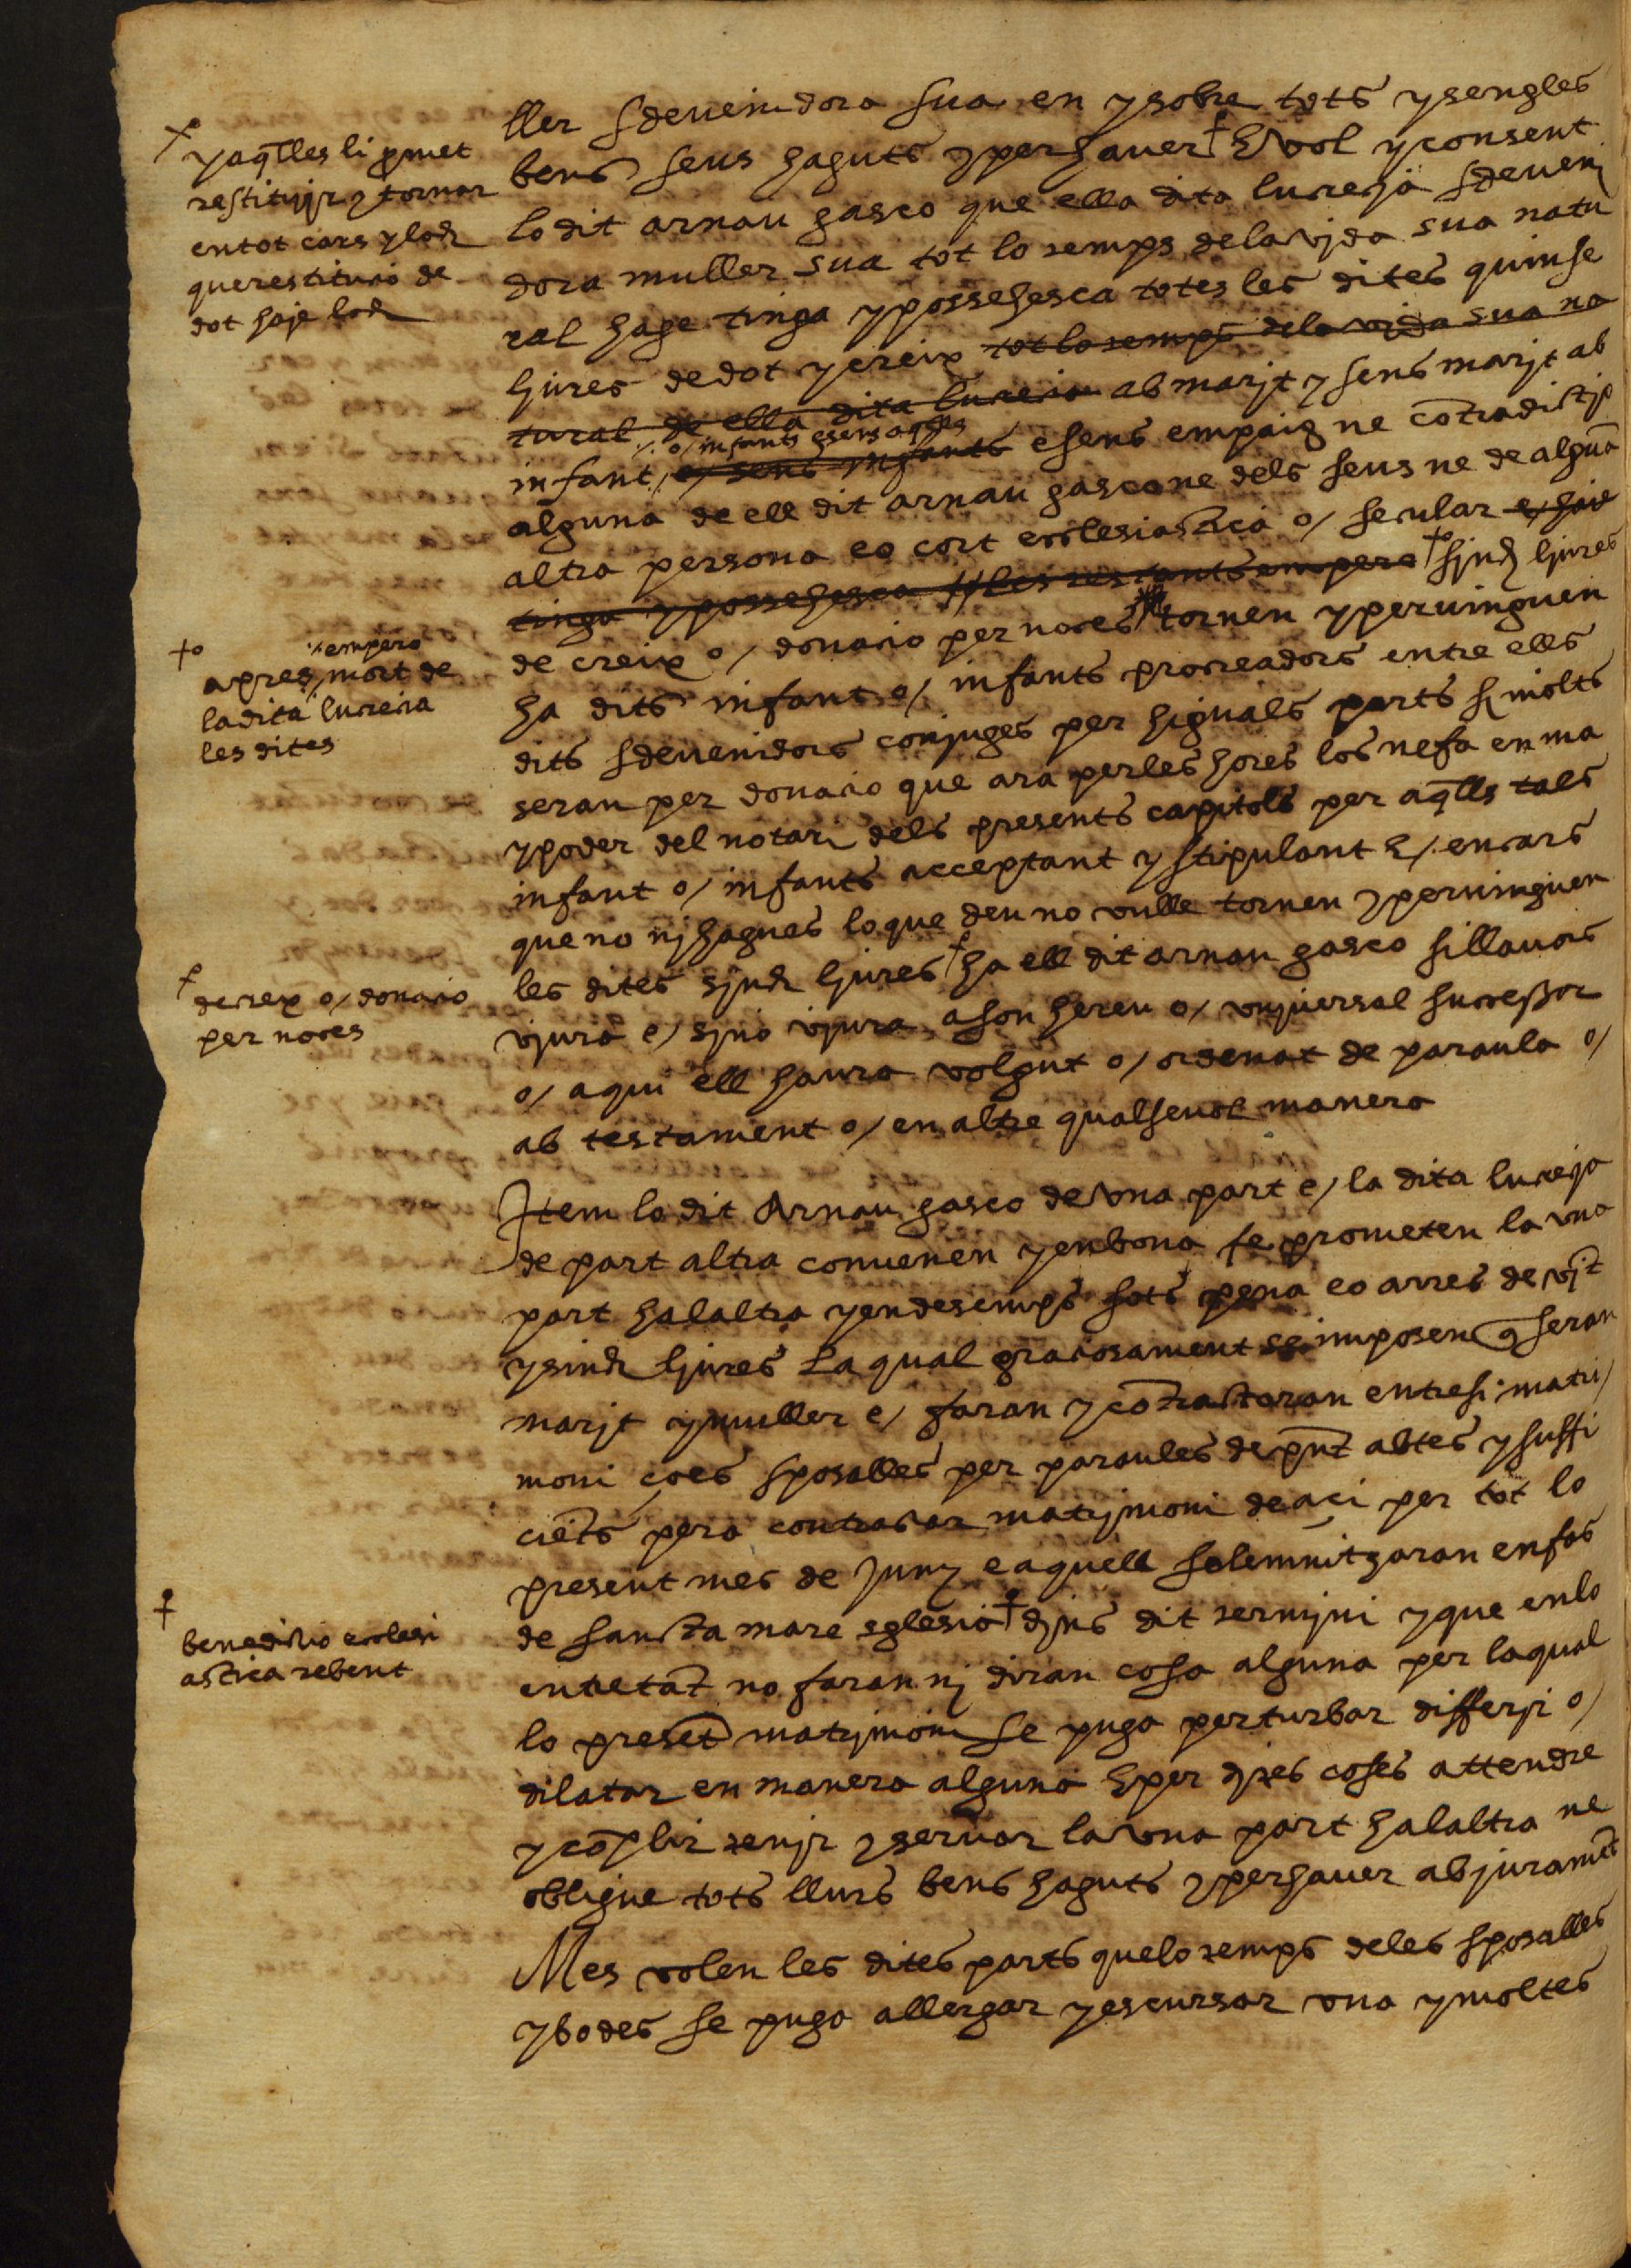 yaq̃lles li ꝓmet
restituyr y tornar
en tot cars y loch
que restitucio de
dot haje loch
ller sdevenidora sua en y sobre tots y sengles
bens seus haguts y per haver E vol y consent
lo dit arnau gasco que ella dita lucreçia sdeveni
dora muller sua tot lo temps de la vjda sua natu
ral hage tinga y possehesca totes les dites quinse
ljures de dot y creix tot lo temps de la vjda sua na
tural de ella dita lucrecia ab marjt y sens marjt ab
o/ infants e sens aq̃lls
infant, o/ sens infants e sens empaig ne cõtradictio
alguna de ell dit arnau gasco ne dels seus ne de algũa
altra persona eo cort ecclesiastica o/ secular e/ haie
tinga y possehesca les restants empero sjnch ljures
de creix o/ donacio per noces tornen y pervinguen
empero
apres mort de
la dita lucrecia
les dites
ha dits infant o/ infants procreadors entre ells
dits sdevenidors conjuges per higuals parts si molts
seran per donacio que ara per les hores los ne fa en ma
y poder del notari dels presents capitols per aq̃lls tals
infant o/ infants acceptant y stipulant E/ en cars
que no nj hagues lo que deu no vulle tornen y pervinguen
les dites sjnch ljures ha ell dit arnau gasco si llavors
de creix o/ donacio
per noces
vjura e/ sjno vjura a son hereu o/ vnjversal successor
o/ a qui ell haura volgut o/ ordenat de paraula o/
ab testament o/ en altre qualsevol manera
Item lo dit Arnau gasco de vna part e/ la dita lucreçia
de part altra convenen y en bona fe prometen la vna
part ha laltra y en desemps sots pena eo arres de vjt
y sinch ljures La qual graciosament se imposen q̃ seran
marjt y muller e/ faran y cõtractaran entre si matri
moni ço es sposalles per paraules de p̃nt abtes y suffi
ciẽts pera contractar matrjmoni de aci per tot lo
present mes de Juny e aquell solemnitzaran en fas
de sancta mare sglesia djns dit termjni y que en lo
benedictio eclesi
astica rebent
entretãt no faran nj diran cosa alguna per la qual
lo presẽt matrjmoni se puga perturbar differjr o/
dilatar en manera alguna E per djtes coses attendre
y cõplir tenjr y servar la vna part ha laltra ne
obligue tots llurs bens haguts y per haver ab juramẽt
Mes volen les dites parts que lo temps de les sposalles
y bodes se puga allergar y escursar vna y moltes